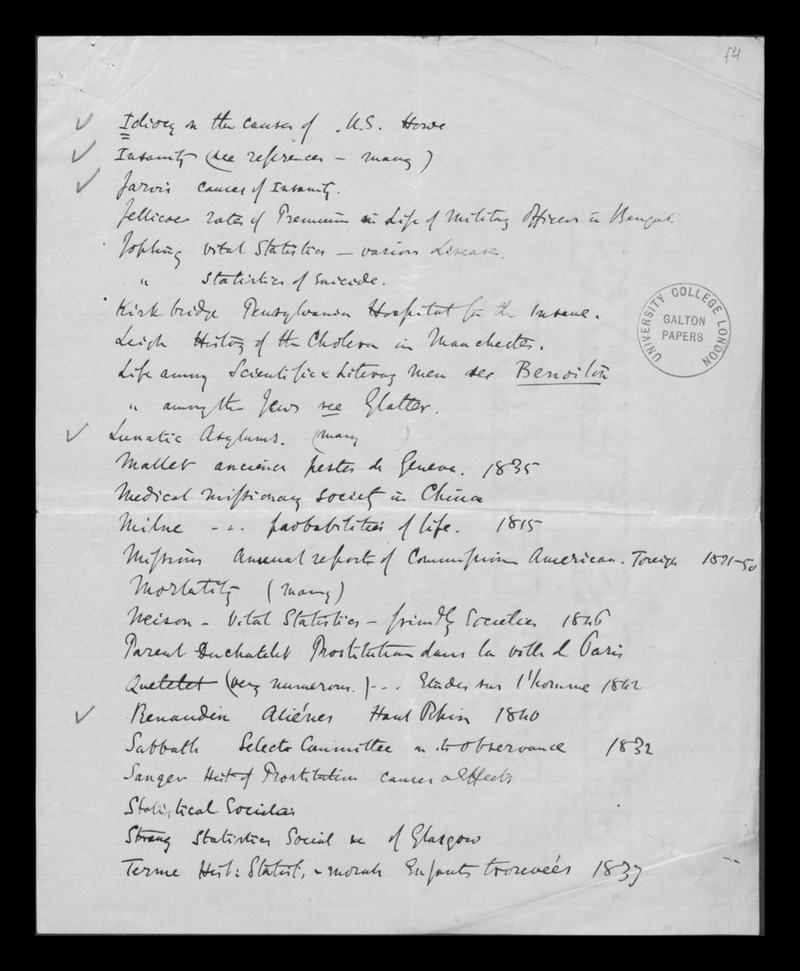 f4
✓ Idiocy on the causes of . U.S. Howe
✓ Insanity (see references - many)
✓ Jarvis causes of Insanity.
Jellicoe rates of Premium in Life of Military Officers in Bengal.
Jopling Vital Statistics - various disease.
" Statistics of Suicide.
Kirkbridge Pensylvania Hospital for the Insane.
Leigh History of the Cholera in Manchester.
Life among Scientific & Literary men see Benoiston
" among the Jews see Glatter.
✓ Lunatic Asylums. (many )
Mallet anciennes pestes de Geneva. 1835
Medical Missionary Society in China
Milne - .. probabilities of life. 1815
Missions Annual reports of Commission American. Foreign 1821-50
Mortality (many)
Neison - Vital Statistics - friendly Societies 1846
Parent Duchatelet Prostitution dans la ville de Paris
Quetelet (very numerous.) - .. Etudes sur l'homme 1842
✓ Renaudin Aliénes Haut Rhin 1840
Sabbath Select Committee on its observance 1832
Sanger Hist of Prostitution causes & effects
Statistical Societies
Strang Statistics Social &c of Glasgow
Terme Hist: Statist. & morale Enfants trouvées 1837
UNIVERSITY COLLEGE LONDON
GALTON
PAPERS